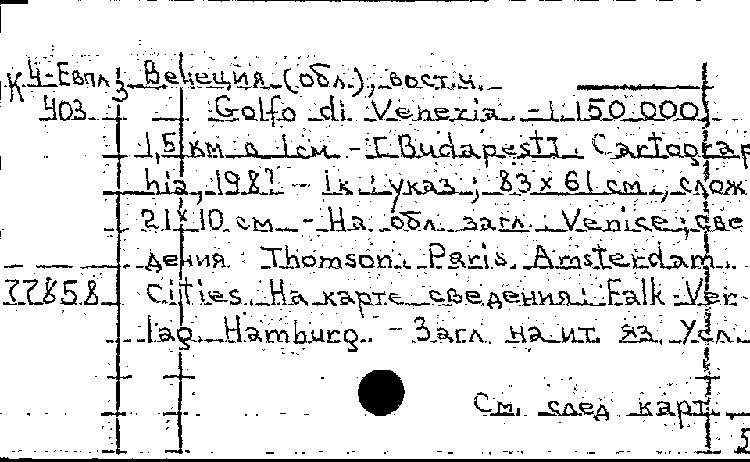 К 4-Евпл 3 Венеция (обл.), вост.ч.
403 Golfo di Venezia. - 1:150 000,
1,5 км в 1 см. - [Budapest]. Cartograp
hia, 198? - 1 к.: указ.; 83 x 61 см., слож.
21 x 10 см. - На обл. загл.: Venice; све
дения: Thomson. Paris. Amsterdam.
77858 Cities. На карте сведения: Falk-Ver-
lag. Hamburg. - Загл. на ит. яз. Усл.
См. след. карт.
5